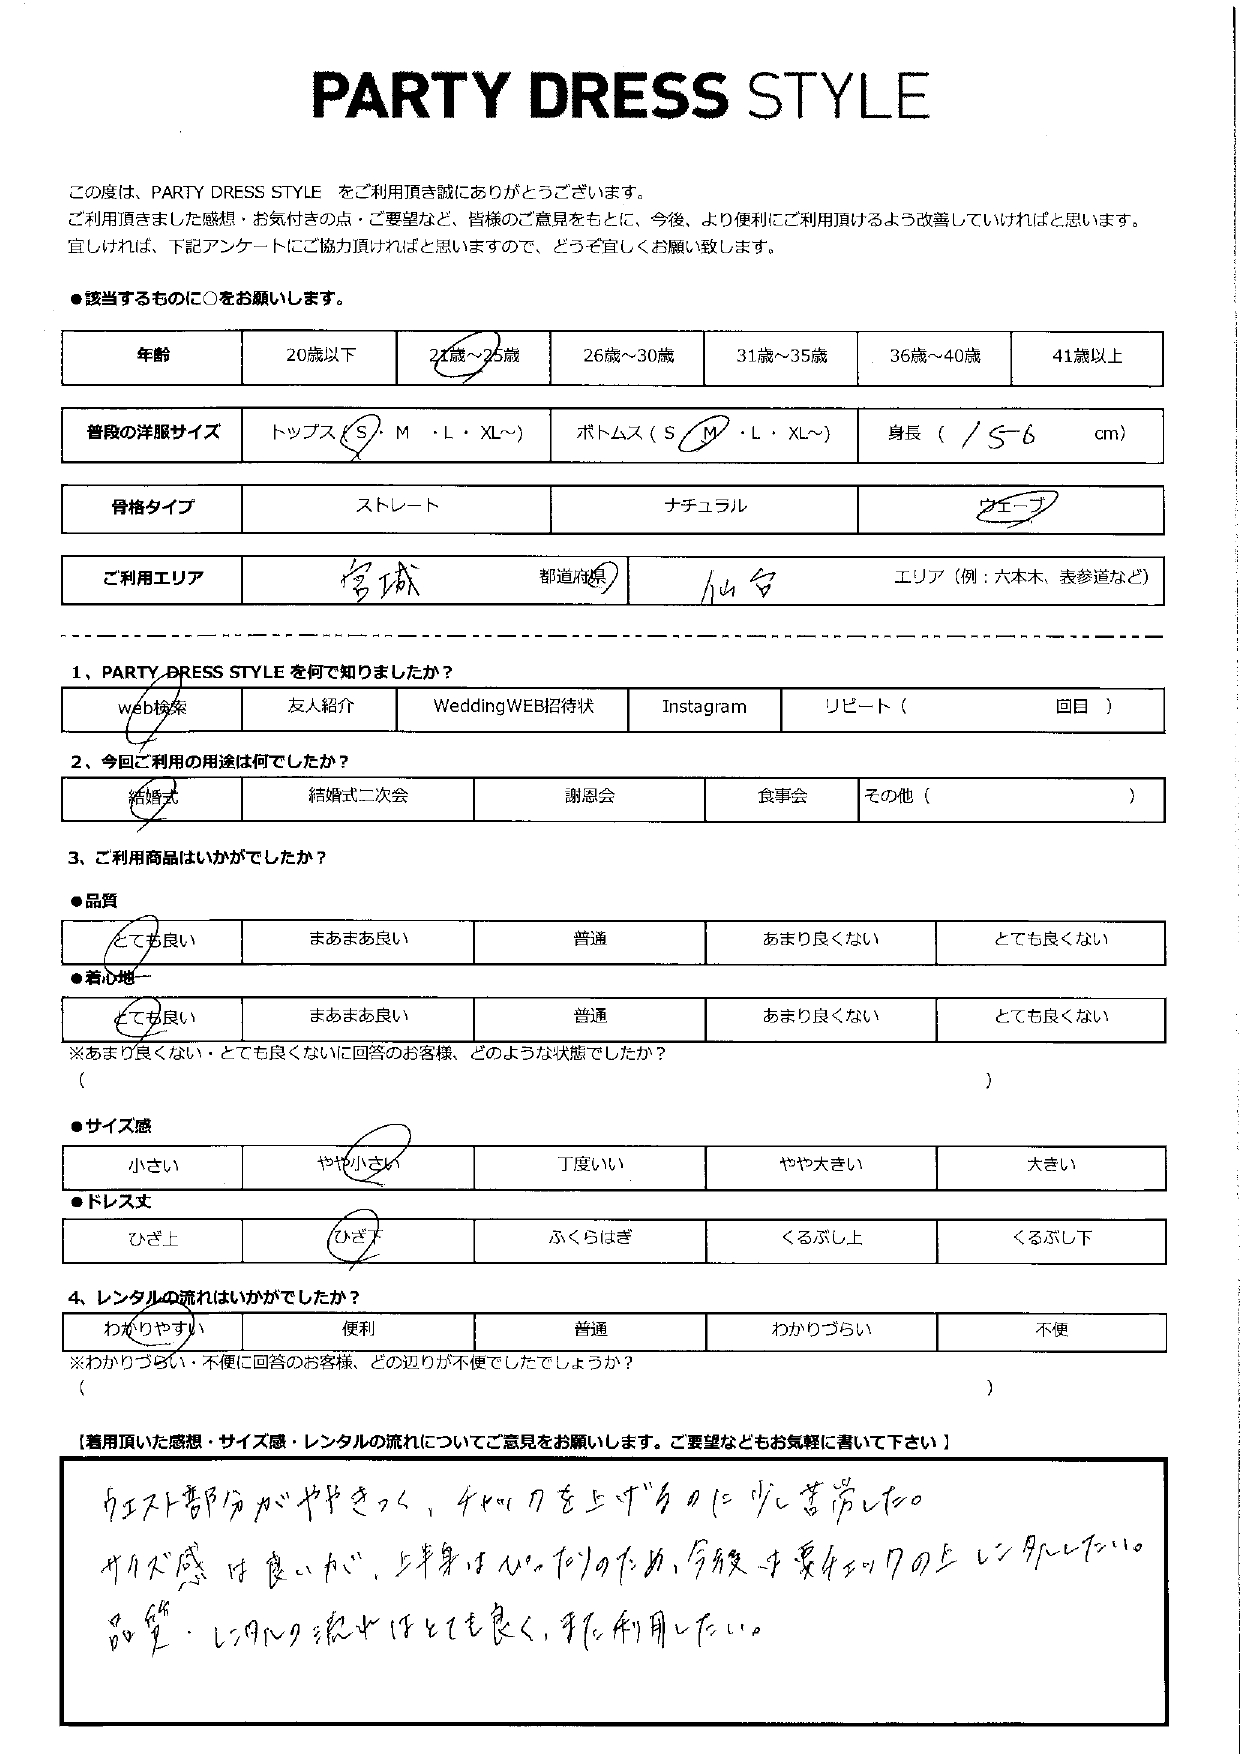 PARTY DRESS STYLE
この度は、PARTY DRESS STYLE　をご利用頂き誠にありがとうございます。
ご利用頂きました感想・お気付きの点・ご要望など、皆様のご意見をもとに、今後、より便利にご利用頂けるよう改善していければと思います。
宜しければ、下記アンケートにご協力頂ければと思いますので、どうぞ宜しくお願い致します。
●該当するものに○をお願いします。
年齢 20歳以下 21歳～25歳 26歳～30歳 31歳～35歳 36歳～40歳 41歳以上
普段の洋服サイズ トップス ( S ・ M ・L ・ XL～) ボトムス ( S ・ M ・L ・ XL～) 身長 ( 156 cm)
骨格タイプ ストレート ナチュラル ウェーブ
ご利用エリア 宮城 都道府県 仙台 エリア（例：六本木、表参道など）
1、PARTY DRESS STYLE を何で知りましたか？
web検索 友人紹介 WeddingWEB招待状 Instagram リピート（ 回目 ）
2、今回ご利用の用途は何でしたか？
結婚式 結婚式二次会 謝恩会 食事会 その他（ ）
3、ご利用商品はいかがでしたか？
●品質
とても良い まあまあ良い 普通 あまり良くない とても良くない
●着心地ー
とても良い まあまあ良い 普通 あまり良くない とても良くない
※あまり良くない・とても良くないに回答のお客様、どのような状態でしたか？
（ ）
●サイズ感
小さい やや小さい 丁度いい やや大きい 大きい
●ドレス丈
ひざ上 ひざ下 ふくらはぎ くるぶし上 くるぶし下
4、レンタルの流れはいかがでしたか？
わかりやすい 便利 普通 わかりづらい 不便
※わかりづらい・不便に回答のお客様、どの辺りが不便でしたでしょうか？
（ ）
【着用頂いた感想・サイズ感・レンタルの流れについてご意見をお願いします。ご要望などもお気軽に書いて下さい 】
ウエスト部分がややきつく、チャックを上げるのに少し苦労した。
サイズ感は良いが、上半身はぴったりのため、今後は要チェックの上レンタルしたい。
品質・レンタルの流れはとても良く、また利用したい。